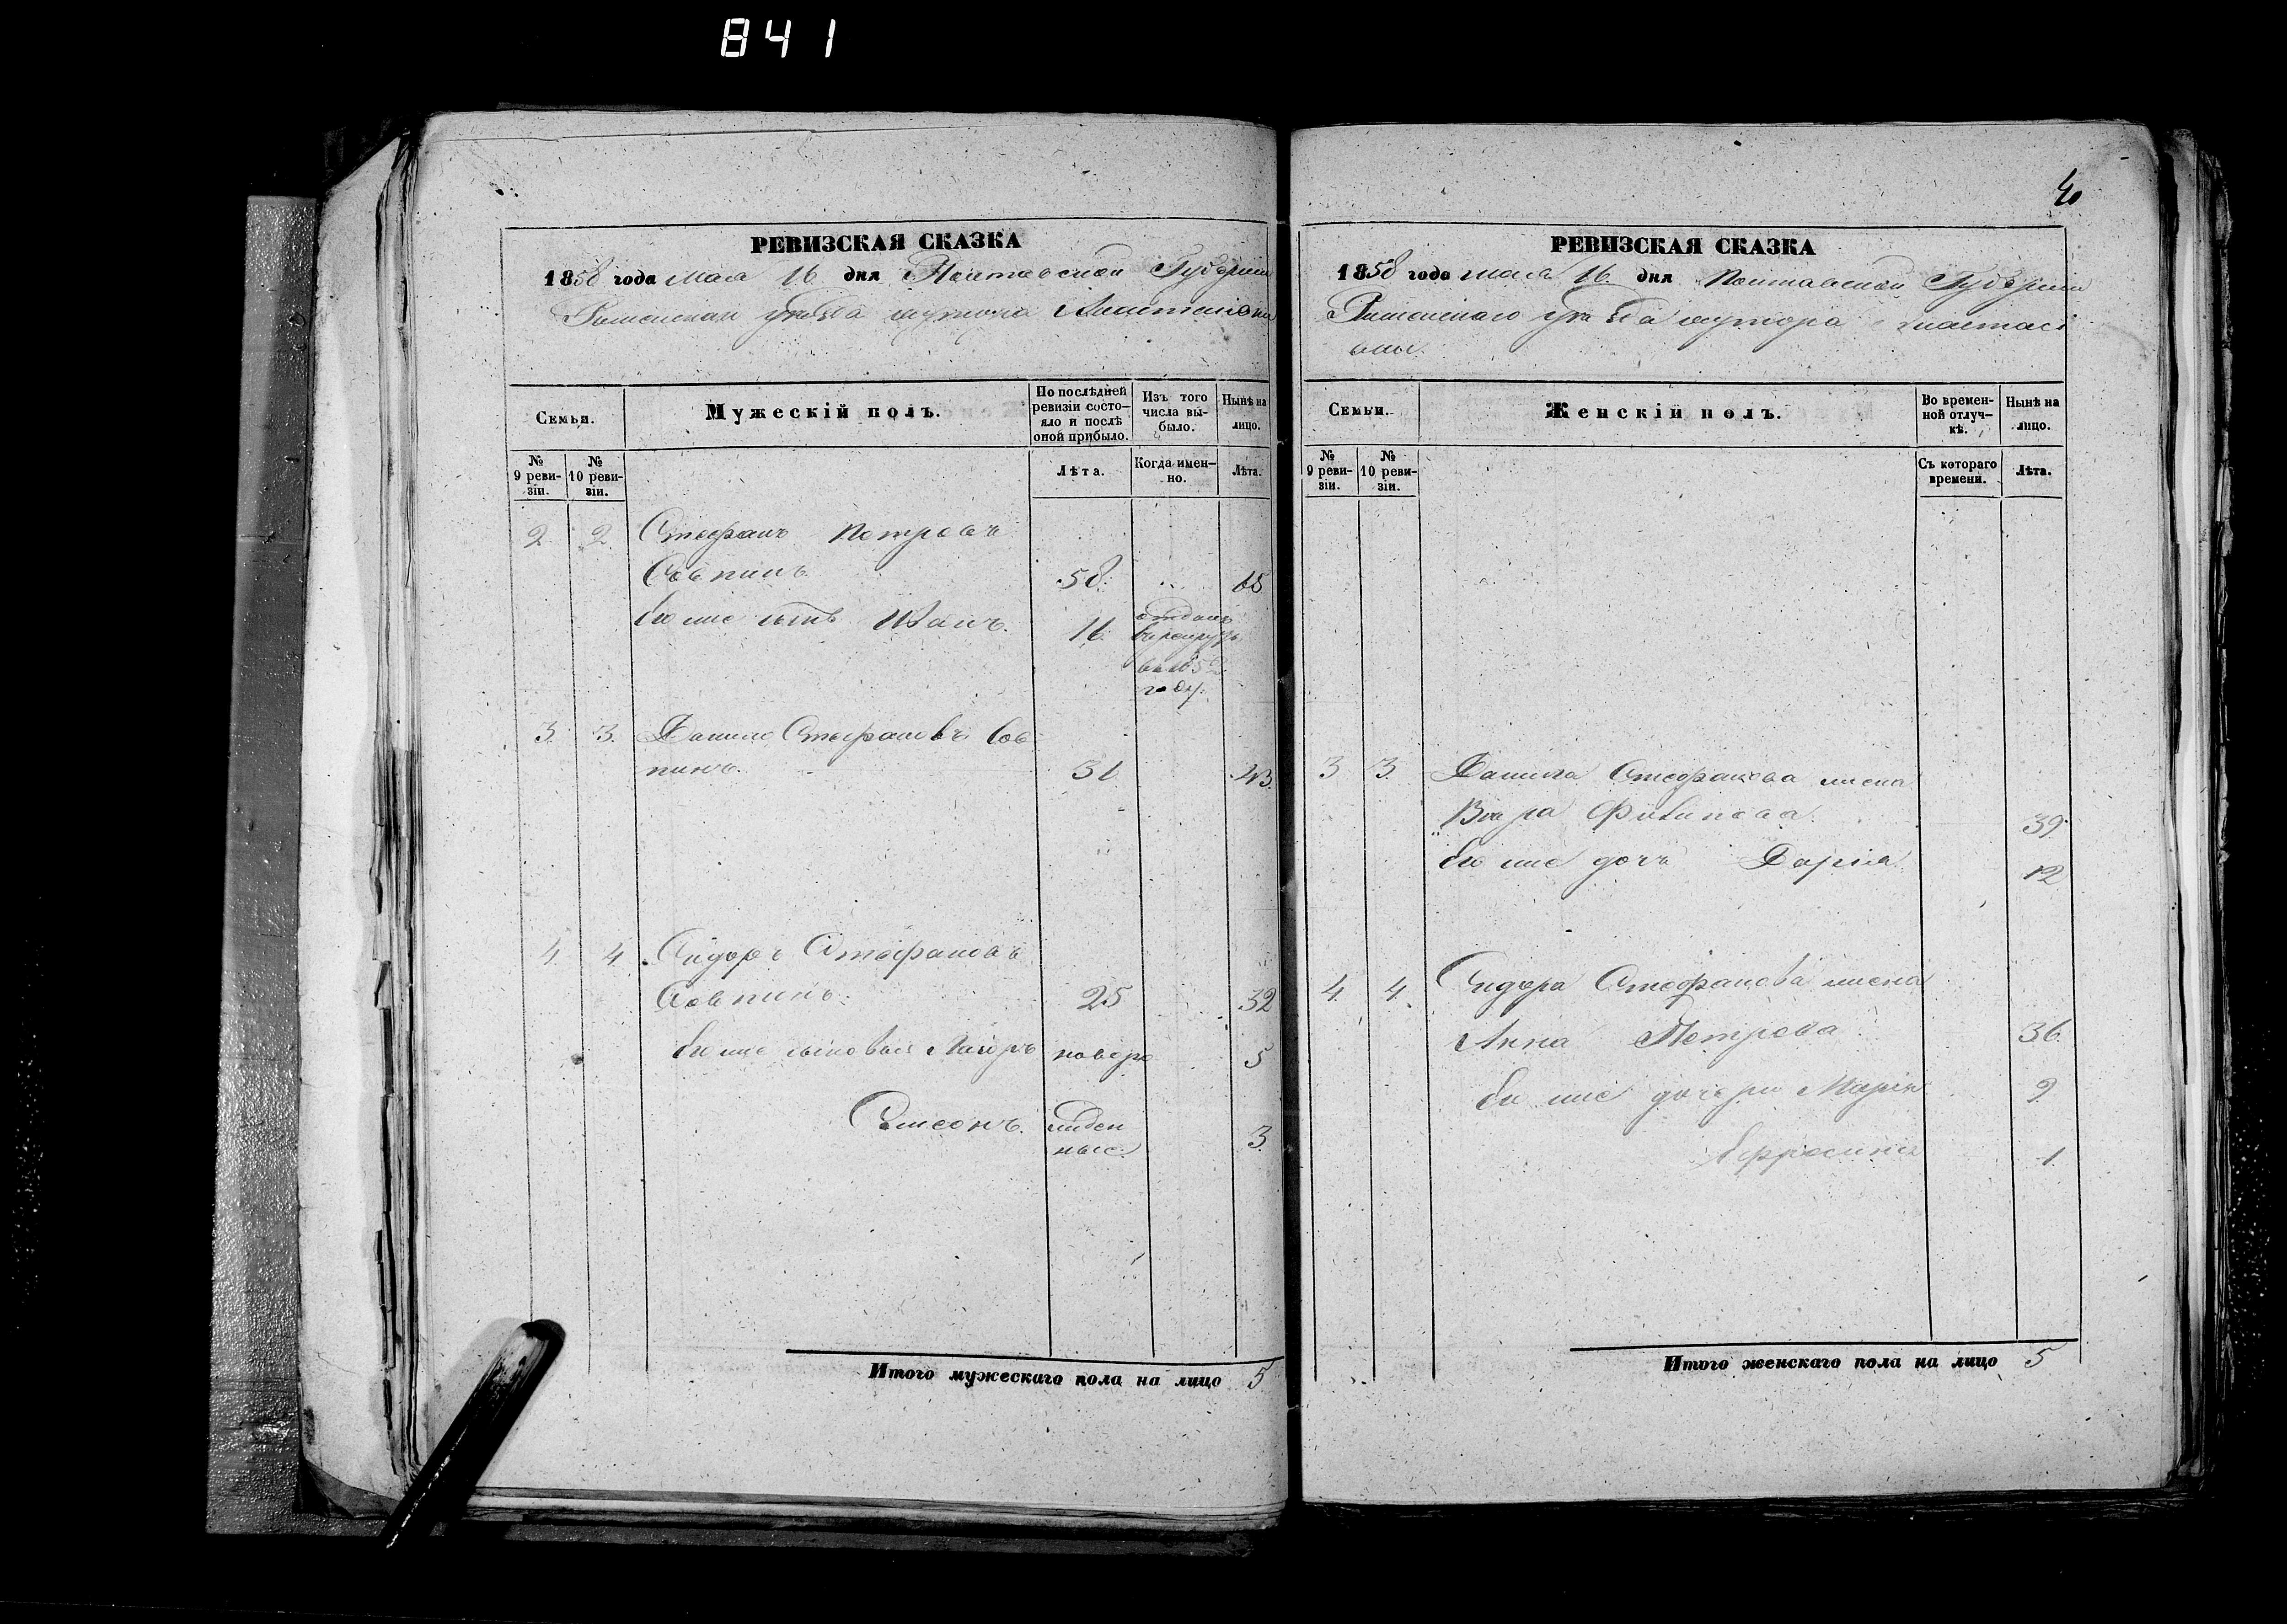 841
РЕВИЗСКАЯ СКАЗКА
1858 года Мая 16 дня Полтавской Губерніи
Роменскаго уезда хутора
Семьи.
Мужескій полъ.
По послѣдней ревизіи состо-
яло и послѣ
оной прибыло.
Изъ того
числа вы-
было.
Нынѣ на
лицо.
№
9 реви-
зіи.
№
10 реви-
зіи.
Лѣта.
Когда имен-
но.
Лѣта.
2 2 Стефанъ Петровъ
Совпинъ 58 65
Его же сынъ Иванъ. 16 отданъ
в рекруты
в 1852
году.
3. 3. Данило Стефановъ Сов
пинъ. 43.
4. 4. Сидоръ Стефановъ
Совпинъ. 25 32
Его же сыновья новоро 5
Самсонъ. жден
ные 3
Итого мужескаго пола на лицо 5
40
РЕВИЗСКАЯ СКАЗКА
1858 года мая 16. дня Полтавской Губерніи
Роменскаго уезда хутора
Семьи.
Женскій полъ.
Во времен-
ной отлуч-
кѣ.
Нынѣ на
лицо.
№
9 реви-
зіи.
№
10 реви-
зіи.
Съ котораго
времени.
Лѣта.
3 3. Данила Стефанова жена
Вѣра Филипова 39.
Его же дочь Дарія 12
4. 4. Сидора Стефанова жена
Анна Петрова 36.
Его же дочери Марія 9
Ефросинія 1.
Итого женскаго пола на лицо 5